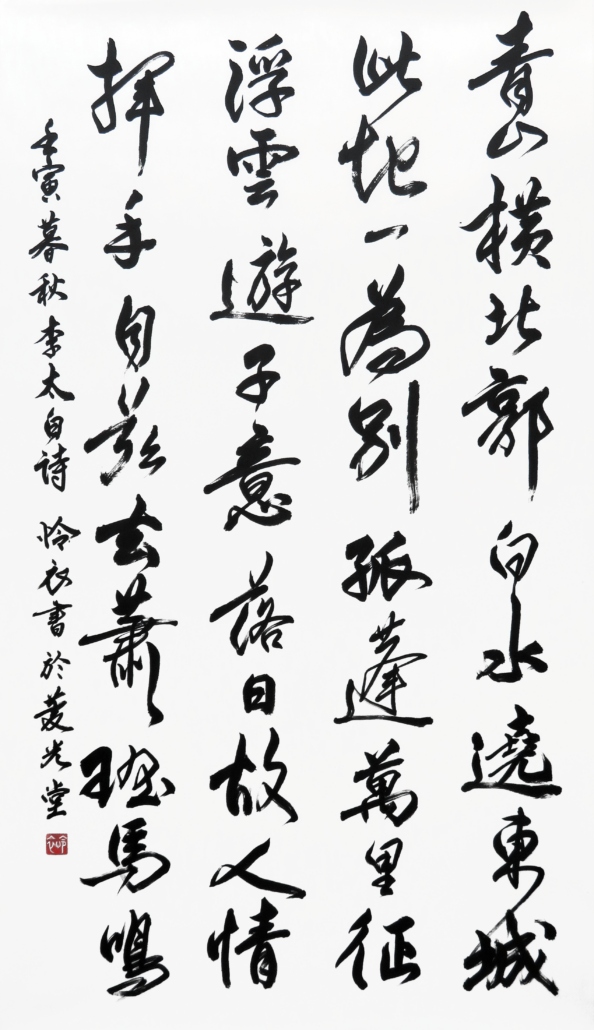 青山橫北郭白水遶東城
此地一為別孤蓬萬里征
浮雲遊子意落日故人情
揮手自茲去蕭〻班馬鳴
壬寅暮秋李太白诗 怜衣書於菱光堂